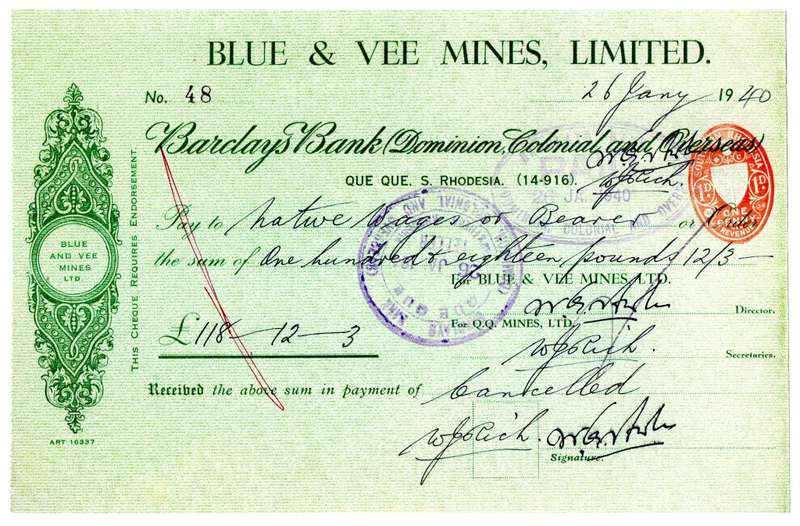 BLUE & VEE MINES, LIMITED.
No. 48
26 Jany 1940
Barclays Bank (Dominion, Colonial and Overseas)
QUE QUE, S. RHODESIA. (14-916).
W J Rich.
JA. 1940
SOUTHERN RHODESIA
1D 1D
ONE PENNY
REVENUE
Pay to native Wages or Bearer or Order
the sum of One hundred & eighteen pounds 12/3 —
For BLUE & VEE MINES LTD.
Director.
For Q.Q. MINES, LTD.
£118 — 12 — 3
W J Rich.
Secretaries.
Received the above sum in payment of
Cancelled
W J Rich.
Signature.
THIS CHEQUE REQUIRES ENDORSEMENT
BLUE
AND VEE
MINES
LTD.
ART 16337
QUE QUE